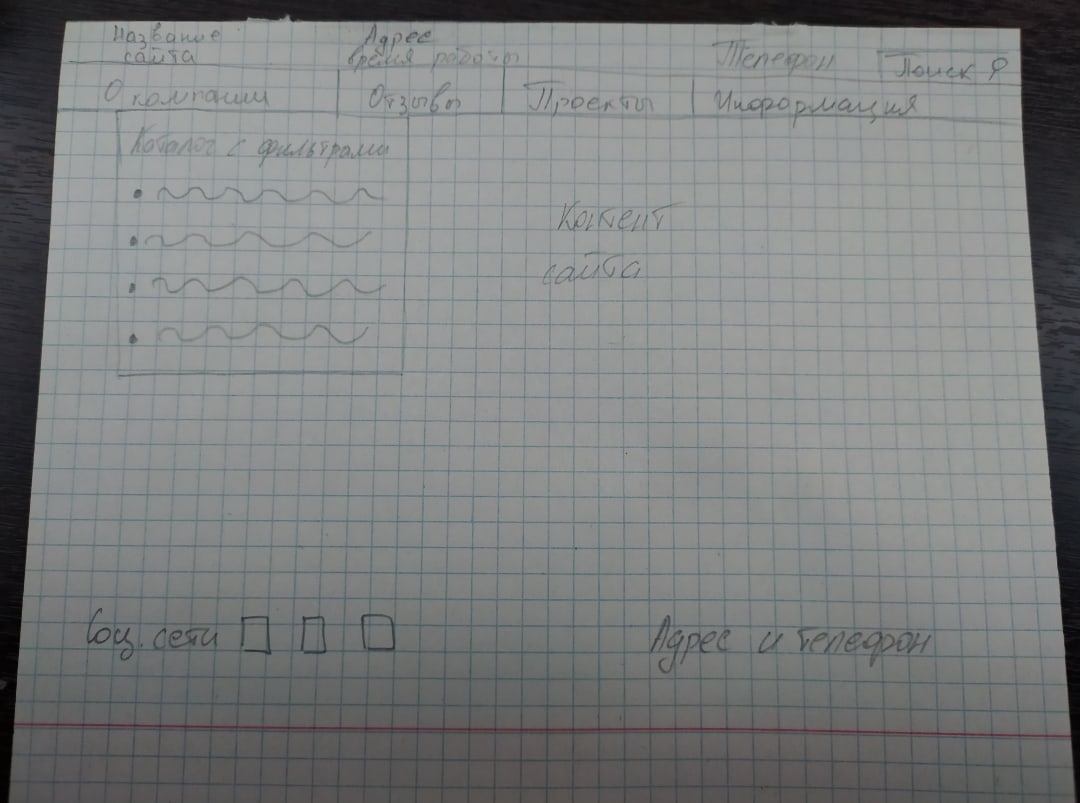 Название
сайта
Адрес
время работы
Телефон
Поиск
О компании
Отзывы
Проекты
Информация
Каталог с фильтрами
Контент
сайта
Соц. сети
Адрес и телефон